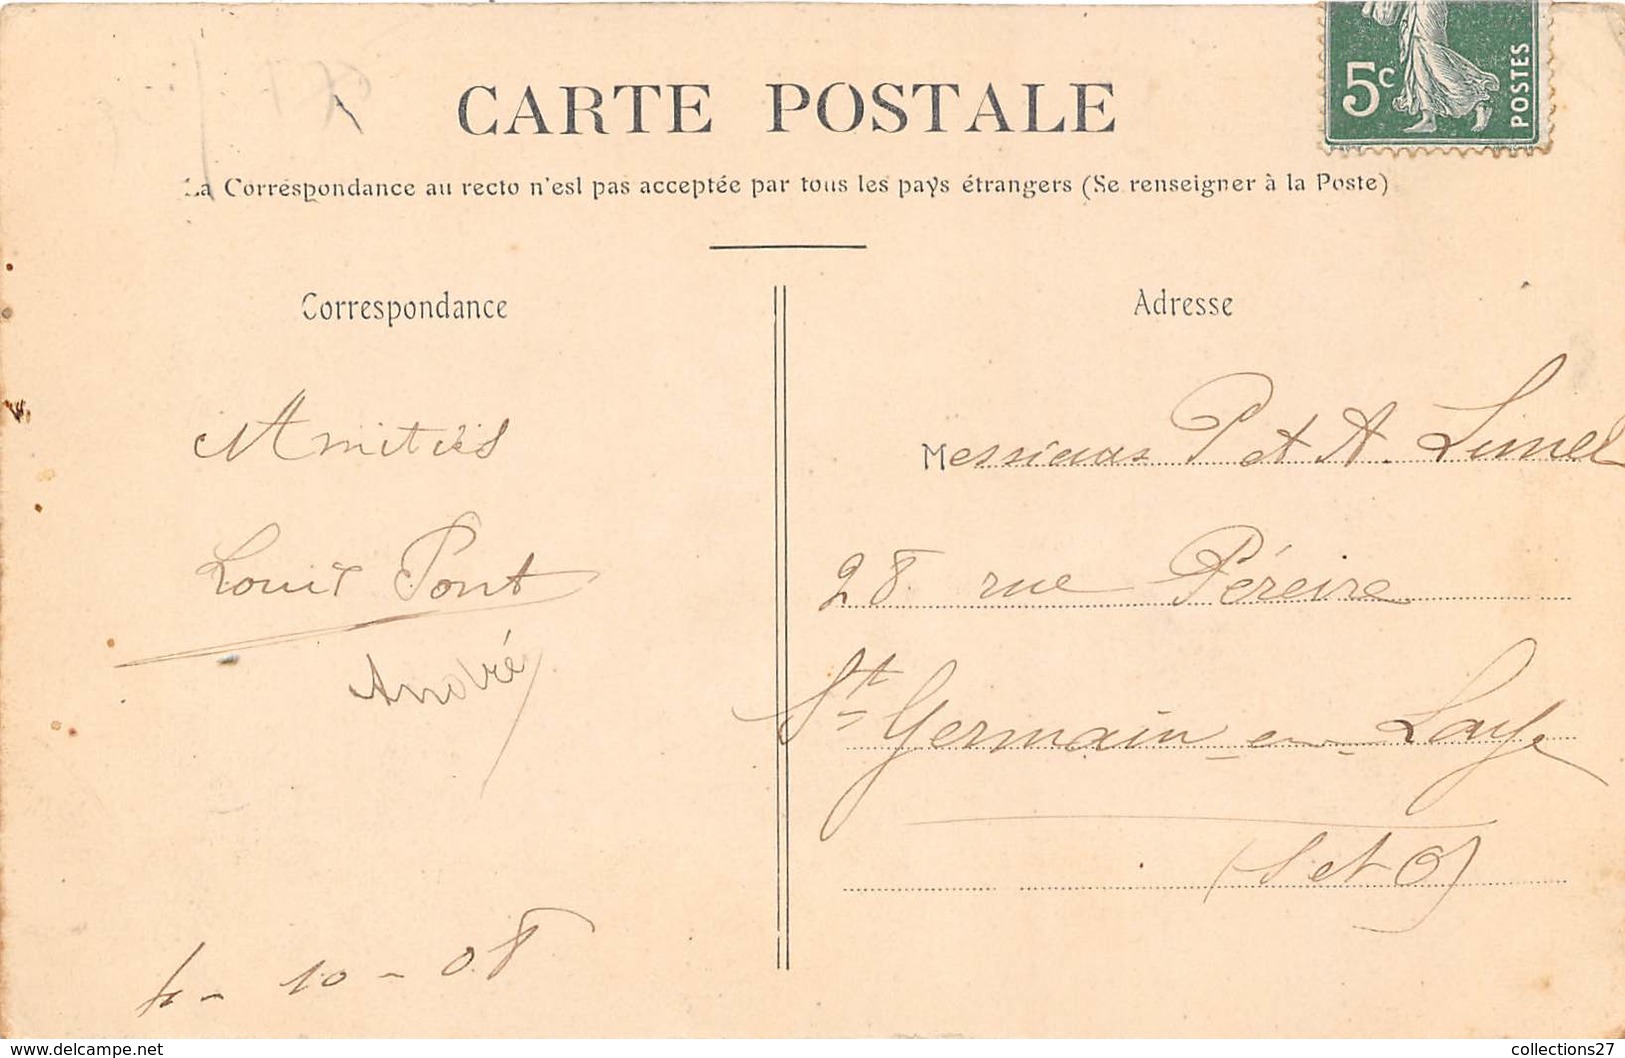 CARTE POSTALE
5c
POSTES
La Correspondance au recto n'est pas acceptée par tous les pays étrangers (Se renseigner à la Poste)
Correspondance
Amitiés
Louis Pont
André
4-10-08
Adresse
Messieurs P et A. Limel
28 rue Péreire
St Germain-en-Laye
(S et O)
www.delcampe.net
collections27